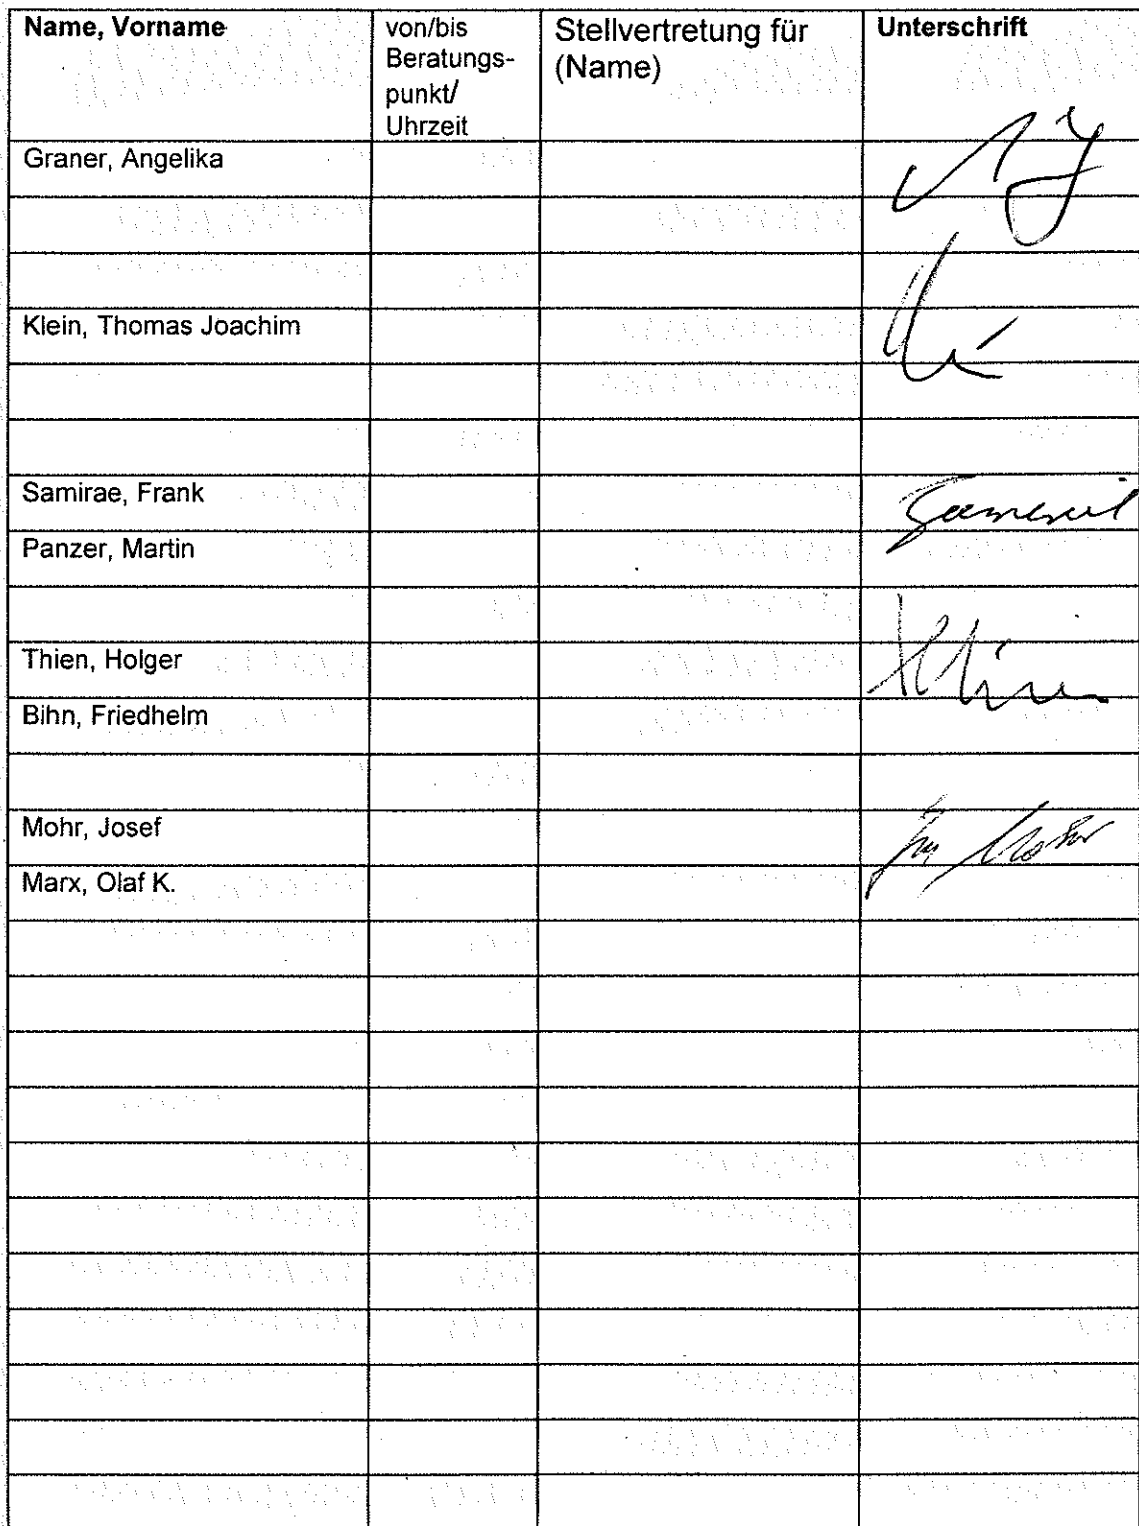 Name, Vorname
von/bis
Beratungs-
punkt/
Uhrzeit
Stellvertretung für
(Name)
Unterschrift
Graner, Angelika
Klein, Thomas Joachim
Samirae, Frank
Panzer, Martin
Thien, Holger
Bihn, Friedhelm
Mohr, Josef
Marx, Olaf K.